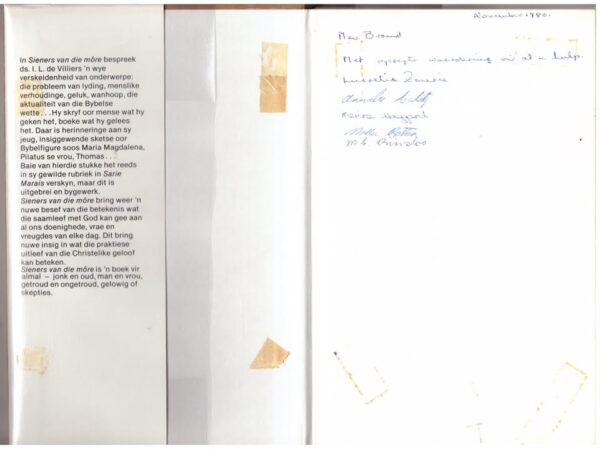 In Sieners van die môre bespreek
ds. I. L. de Villiers 'n wye
verskeidenheid van onderwerpe:
die probleem van lyding, menslike
verhoudinge, geluk, wanhoop, die
aktualiteit van die Bybelse
wette . . . Hy skryf oor mense wat hy
geken het, boeke wat hy gelees
het. Daar is herinneringe aan sy
jeug, insiggewende sketse oor
Bybelfigure soos Maria Magdalena,
Pilatus se vrou, Thomas . . .
Baie van hierdie stukke het reeds
in sy gewilde rubriek in Sarie
Marais verskyn, maar dit is
uitgebrei en bygewerk.
Sieners van die môre bring weer 'n
nuwe besef van die betekenis wat
die saamleef met God kan gee aan
al ons doenighede, vrae en
vreugdes van elke dag. Dit bring
nuwe insig in wat die praktiese
uitleef van die Christelike geloof
kan beteken.
Sieners van die môre is 'n boek vir
almal – jonk en oud, man en vrou,
getroud en ongetroud, gelowig of
skepties.
November 1980.
Mev. Brand
Met opregte waardering vir al u hulp.